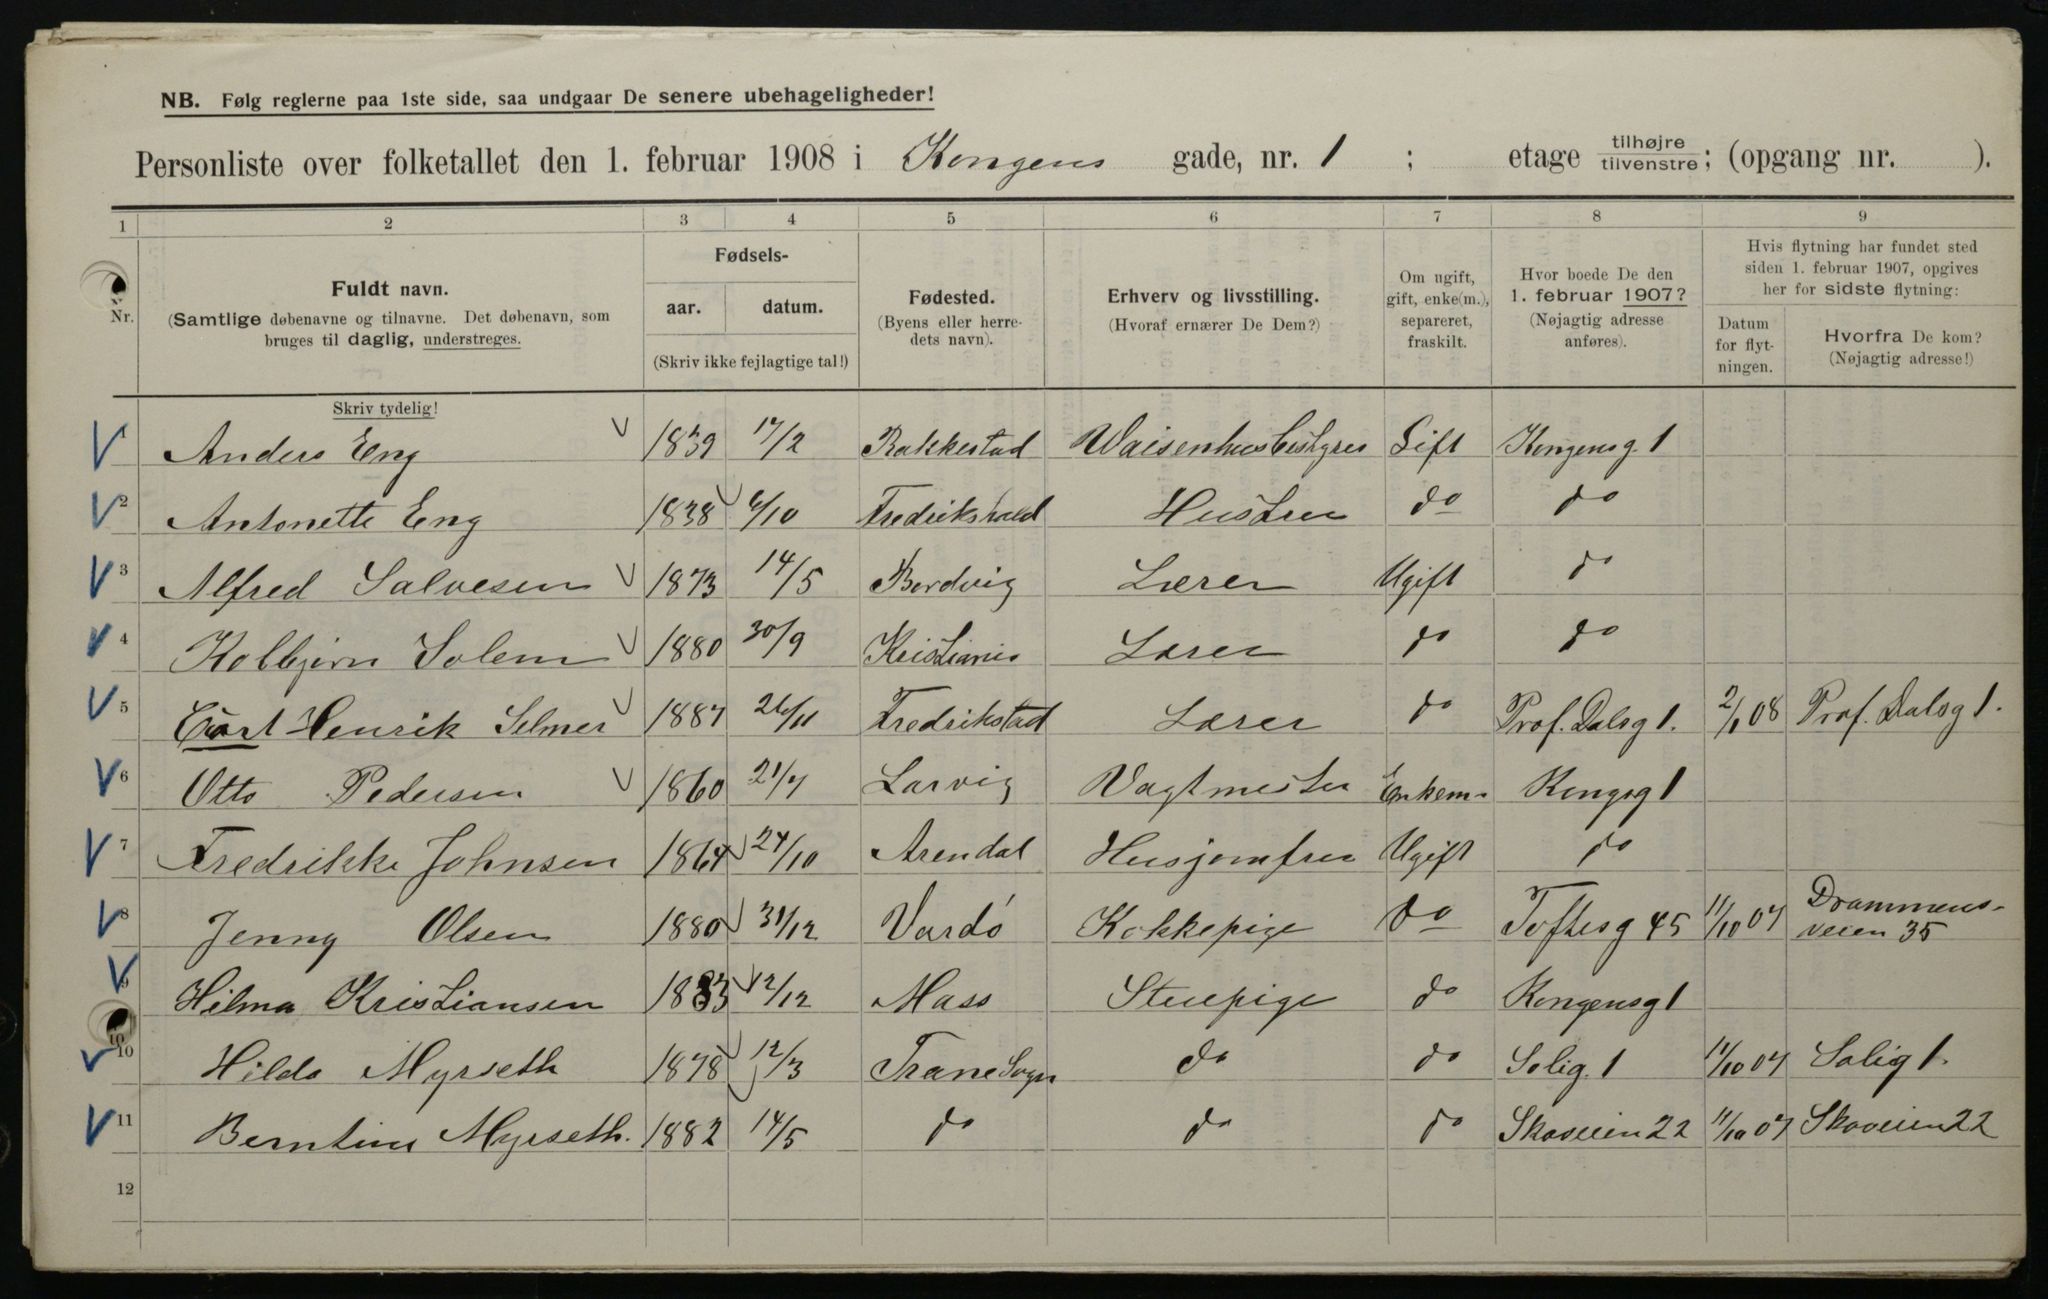 NB. Følg reglerne paa 1ste side, saa undgaar De senere ubehageligheder!
Personliste over folketallet den 1. februar 1908 i Kongens gade, nr. 1 ; etage tilhøjre tilvenstre; (opgang nr. ).
1 2 3 4 5 6 7 8 9
Nr.
Fuldt navn.
(Samtlige døbenavne og tilnavne. Det døbenavn, som
bruges til daglig, understreges.
Fødsels-
aar. datum.
(Skriv ikke fejlagtige tal!)
Fødested.
(Byens eller herre-
dets navn).
Erhverv og livsstilling.
(Hvoraf ernærer De Dem?)
Om ugift,
gift, enke(m.),
separeret,
fraskilt.
Hvor boede De den
1. februar 1907?
(Nøjagtig adresse
anføres).
Hvis flytning har fundet sted
siden 1. februar 1907, opgives
her for sidste flytning:
Datum
for flyt-
ningen.
Hvorfra De kom?
(Nøjagtig adresse!)
Skriv tydelig!
1 Anders Eng 1839 17/2 Rakkestad Waisenhusbestyrer Gift Kongensg. 1
2 Antonette Eng 1838 6/10 Fredrikshald Hustru do do
3 Alfred Salvesen 1873 14/5 Lærer Ugift do
4 Kolbjørn Solem 1880 30/9 Kristiania Lærer do do
5 Carl Henrik Selmer 1887 26/11 Fredrikstad Lærer do Prof. Dalsg 1. 2/1 08 Prof. Dalsg 1.
6 Otto Pedersen 1860 21/7 Larvig Vagtmester Enkem. Kongsg 1
7 Fredrikke Johnsen 1864 24/10 Arendal Husjomfru Ugift do
8 Jenny Olsen 1880 31/12 Vardö Kokkepige do Toftesg 45 11/10 07 Drammens-
veien 35
9 Hilma Kristiansen 1883 12/12 Moss Stuepige do Kongensg 1
10 Hilda Myrseth 1878 12/3 Trane Sogn do do Solig. 1 11/10 07 Solig 1.
11 Berntine Myrseth. 1882 14/5 do do do Skoveien 22 11/10 07 Skoveien 22
12